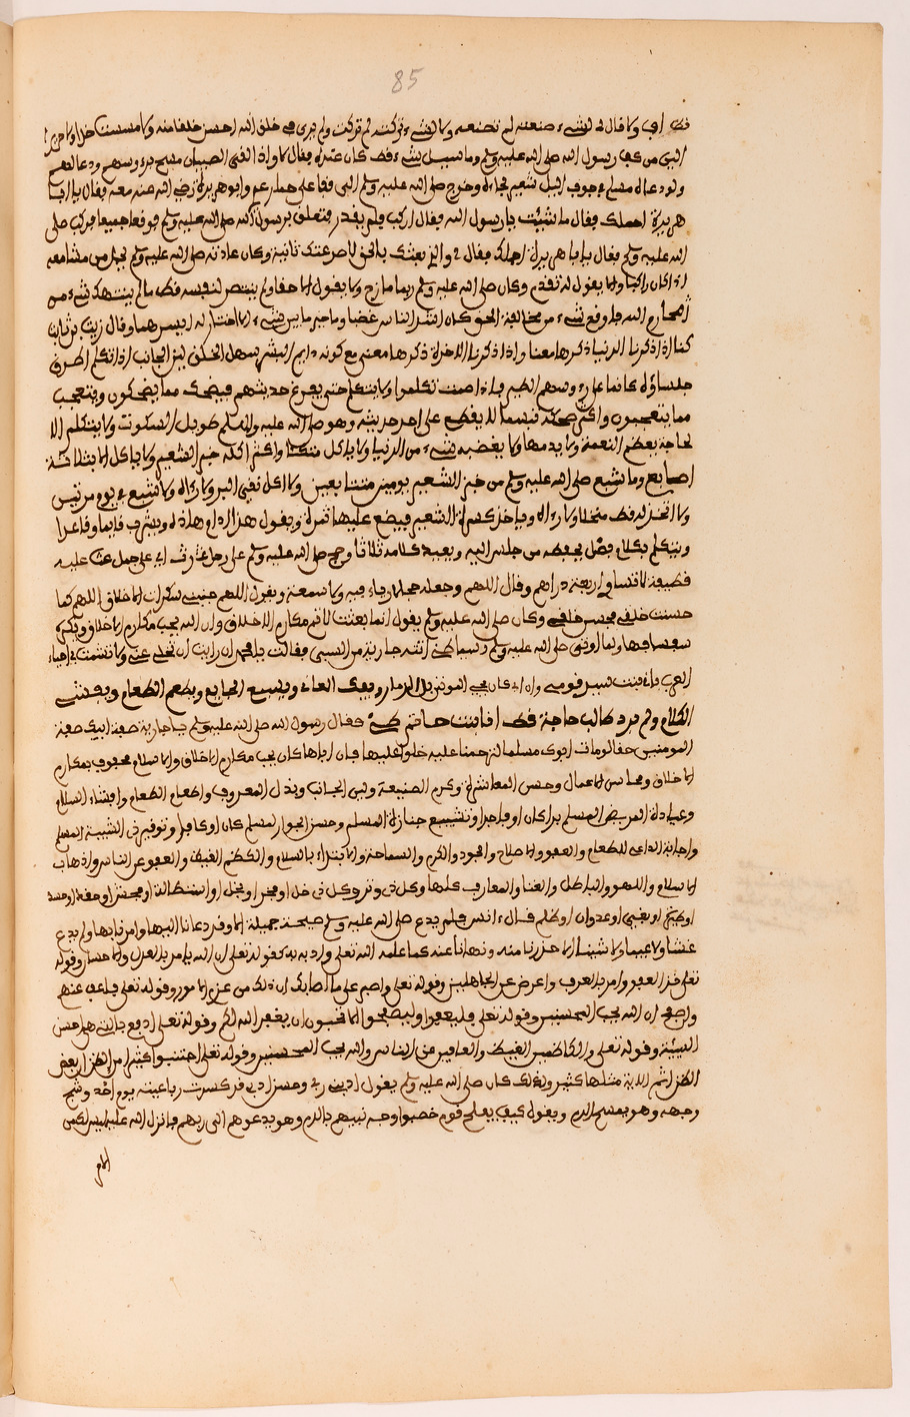 85
قط اف ولا قال لي لشيء صنعته لم صنعته ولا لشيء تركته لم تركت ولم يرى في خلق الله احسن خلقا منه ولا مسست خزا ولا حريرا
الين من كف رسول الله صلى الله عليه وسلم وما سيل شيء قط كان عنده فقال لا واذا لقى الصبيان مسح برءوسهم ودعا لهم
صلى الله عليه وسلم وابو هريرة رضي الله عنه معه فقال يا ابا
هريرة احملك فقال ما شيت يا رسول الله فقال اركب فلم يقدر فتعلق برسول الله صلى الله عليه وسلم فوقعا جميعا فركب صلى
الله عليه وسلم فقال يا ابا هريرة احملك فقال لا والذي بعثك بالحق لا صرعتك ثانية وكان عادته صلى الله عليه وسلم
اذا كان راكبا وانما يقول له تقدم وكان صلى الله عليه وسلم ربما مازح ولا يقول الا حقا ولم ينتصر لنفسه قط ما لم ينتهك شيء من
محارم الله فلو وقع شيء من مخالفة الحق كان اشد الناس غضبا وما خير ما بين شيء الا اختار له ايسرهما وقال زيد بن ثابت
كنا اذا ذكرنا الدنيا ذكرها معنا واذا ذكرنا الاخرة ذكرها معنا مع كونه دايم البشر سهل الخلق لين الجانب اذا تكلم اطرق
جلساؤه كانما على رءوسهم الطير فاذا صمت تكلموا ولا يتكلم حتى يفرغ حديثهم فيضحك مما يضحكون ويتعجب
مما يتعجبون واكثر ضحكه تبسما لا يقطع على احد حديثه وهو صلى الله عليه وسلم طويل السكوت ولا يتكلم الا
لحاجة يعظم النعمة ولا يذمها ولا يغضبه شيء من الدنيا ولا ياكل متكئا واكثر اكله خبز الشعير ولا ياكل الا بثلاثة
اصابع وما شبع صلى الله عليه وسلم من خبز الشعير يومين متتابعين
ولا انخل له قط منخلا وياخذ كسرة الشعير فيضع عليها تمرة ويقول هذا ادام هذه ويشرب قايما وقاعدا
ويتكلم بكلام فصل يحفظه من جلس اليه ويعيد كلامه ثلاثا وحج صلى الله عليه وسلم على رحل رث اي على جمل عليه
قطيفة لا تساوي اربعة دراهم وقال اللهم وجعله حجا لا رياء فيه ولا سمعة ويقول اللهم جنبني منكرات الاخلاق اللهم كما
حسنت خلقي فحسن خلقي وكان صلى الله عليه وسلم يقول انما بعثت لاتمم مكارم الاخلاق وان الله يحب مكارم الاخلاق ويكره
سفسافها ولما اوتي صلى الله عليه وسلم اتته جارية من السبي فقالت يا محمد ان رايت ان تخلي عني ولا تشمت بي احياء
العرب فاني بنت سيد قومي وان ابي كان يحمي الذمار ويفك العاني ويشبع الجايع ويطعم الطعام ويفشي
السلام ولم يرد طالب حاجة قط انا بنت حاتم طيء فقال رسول الله صلى الله عليه وسلم يا جارية صفة ابيك صفة
المومنين حقا لو مات ابوك مسلما لترحمنا عليه خلوا عليها فان اباها كان يحب مكارم الاخلاق والاسلام محفوف بمكارم
الاخلاق ومحاسن الاعمال وحسن المعاشرة وكرم الصنيعة ولين الجانب وبذل المعروف واطعام الطعام وافشاء السلام
وعيادة المريض المسلم برا كان او فاجرا وتشييع جنازة المسلم وحسن الجوار لمسلم كان او كافر وتوقير ذي الشيبة المسلم
واجابة الداعي للطعام والعفو والاصلاح والجود والكرم والسماحة والابتداء بالسلام والكظم الغيظ والعفو عن الناس واذهاب
الاسلام واللهو والباطل والغنا والمعازف كلها
او بغي او عدوان او ظلم قال انس فلم يدع صلى الله عليه وسلم صيحة جميلة الا وقد دعانا اليها وامرنا بها ولم يدع
غشا ولا عيبا ولا شينا الا حذرنا منه ونهانا عنه كما علمه الله تعلى وادبه به كقوله تعلى ان الله يامر بالعدل والاحسان وقوله
تعلى خذ العفو وامر بالعرف واعرض عن الجاهلين وقوله تعلى واصبر على ما اصابك ان ذلك من عزم الامور وقوله تعلى فاعف عنهم
واصفح ان الله يحب المحسنين وقوله تعلى وليعفوا وليصفحوا الا تحبون ان يغفر الله لكم وقوله تعلى ادفع بالتي هي احسن
السيئة وقوله تعلى والكاظمين الغيظ والعافين عن الناس والله يحب المحسنين وقوله تعلى اجتنبوا كثيرا من الظن ان بعض
الظن اثم الاية مثلها كثير ولذلك كان صلى الله عليه وسلم يقول ادبني ربي وحسن ادبي قد كسرت رباعيته يوم احد وشج
وجهه وهو يمسح الدم ويقول كيف يفلح قوم خضبوا وجه نبيهم بالدم وهو يدعوهم الى ربهم فانزل الله عليه ليس لك من
الامر